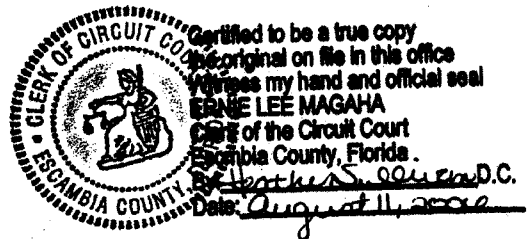 CLERK OF CIRCUIT
ESCAMBIA COUNTY,
Certified to be a true copy
original on file in this office
Witness my hand and official seal
ERNIE LEE MAGAHA
Clerk of the Circuit Court
Escambia County, Florida.
By: D.C.
Date: August 11,